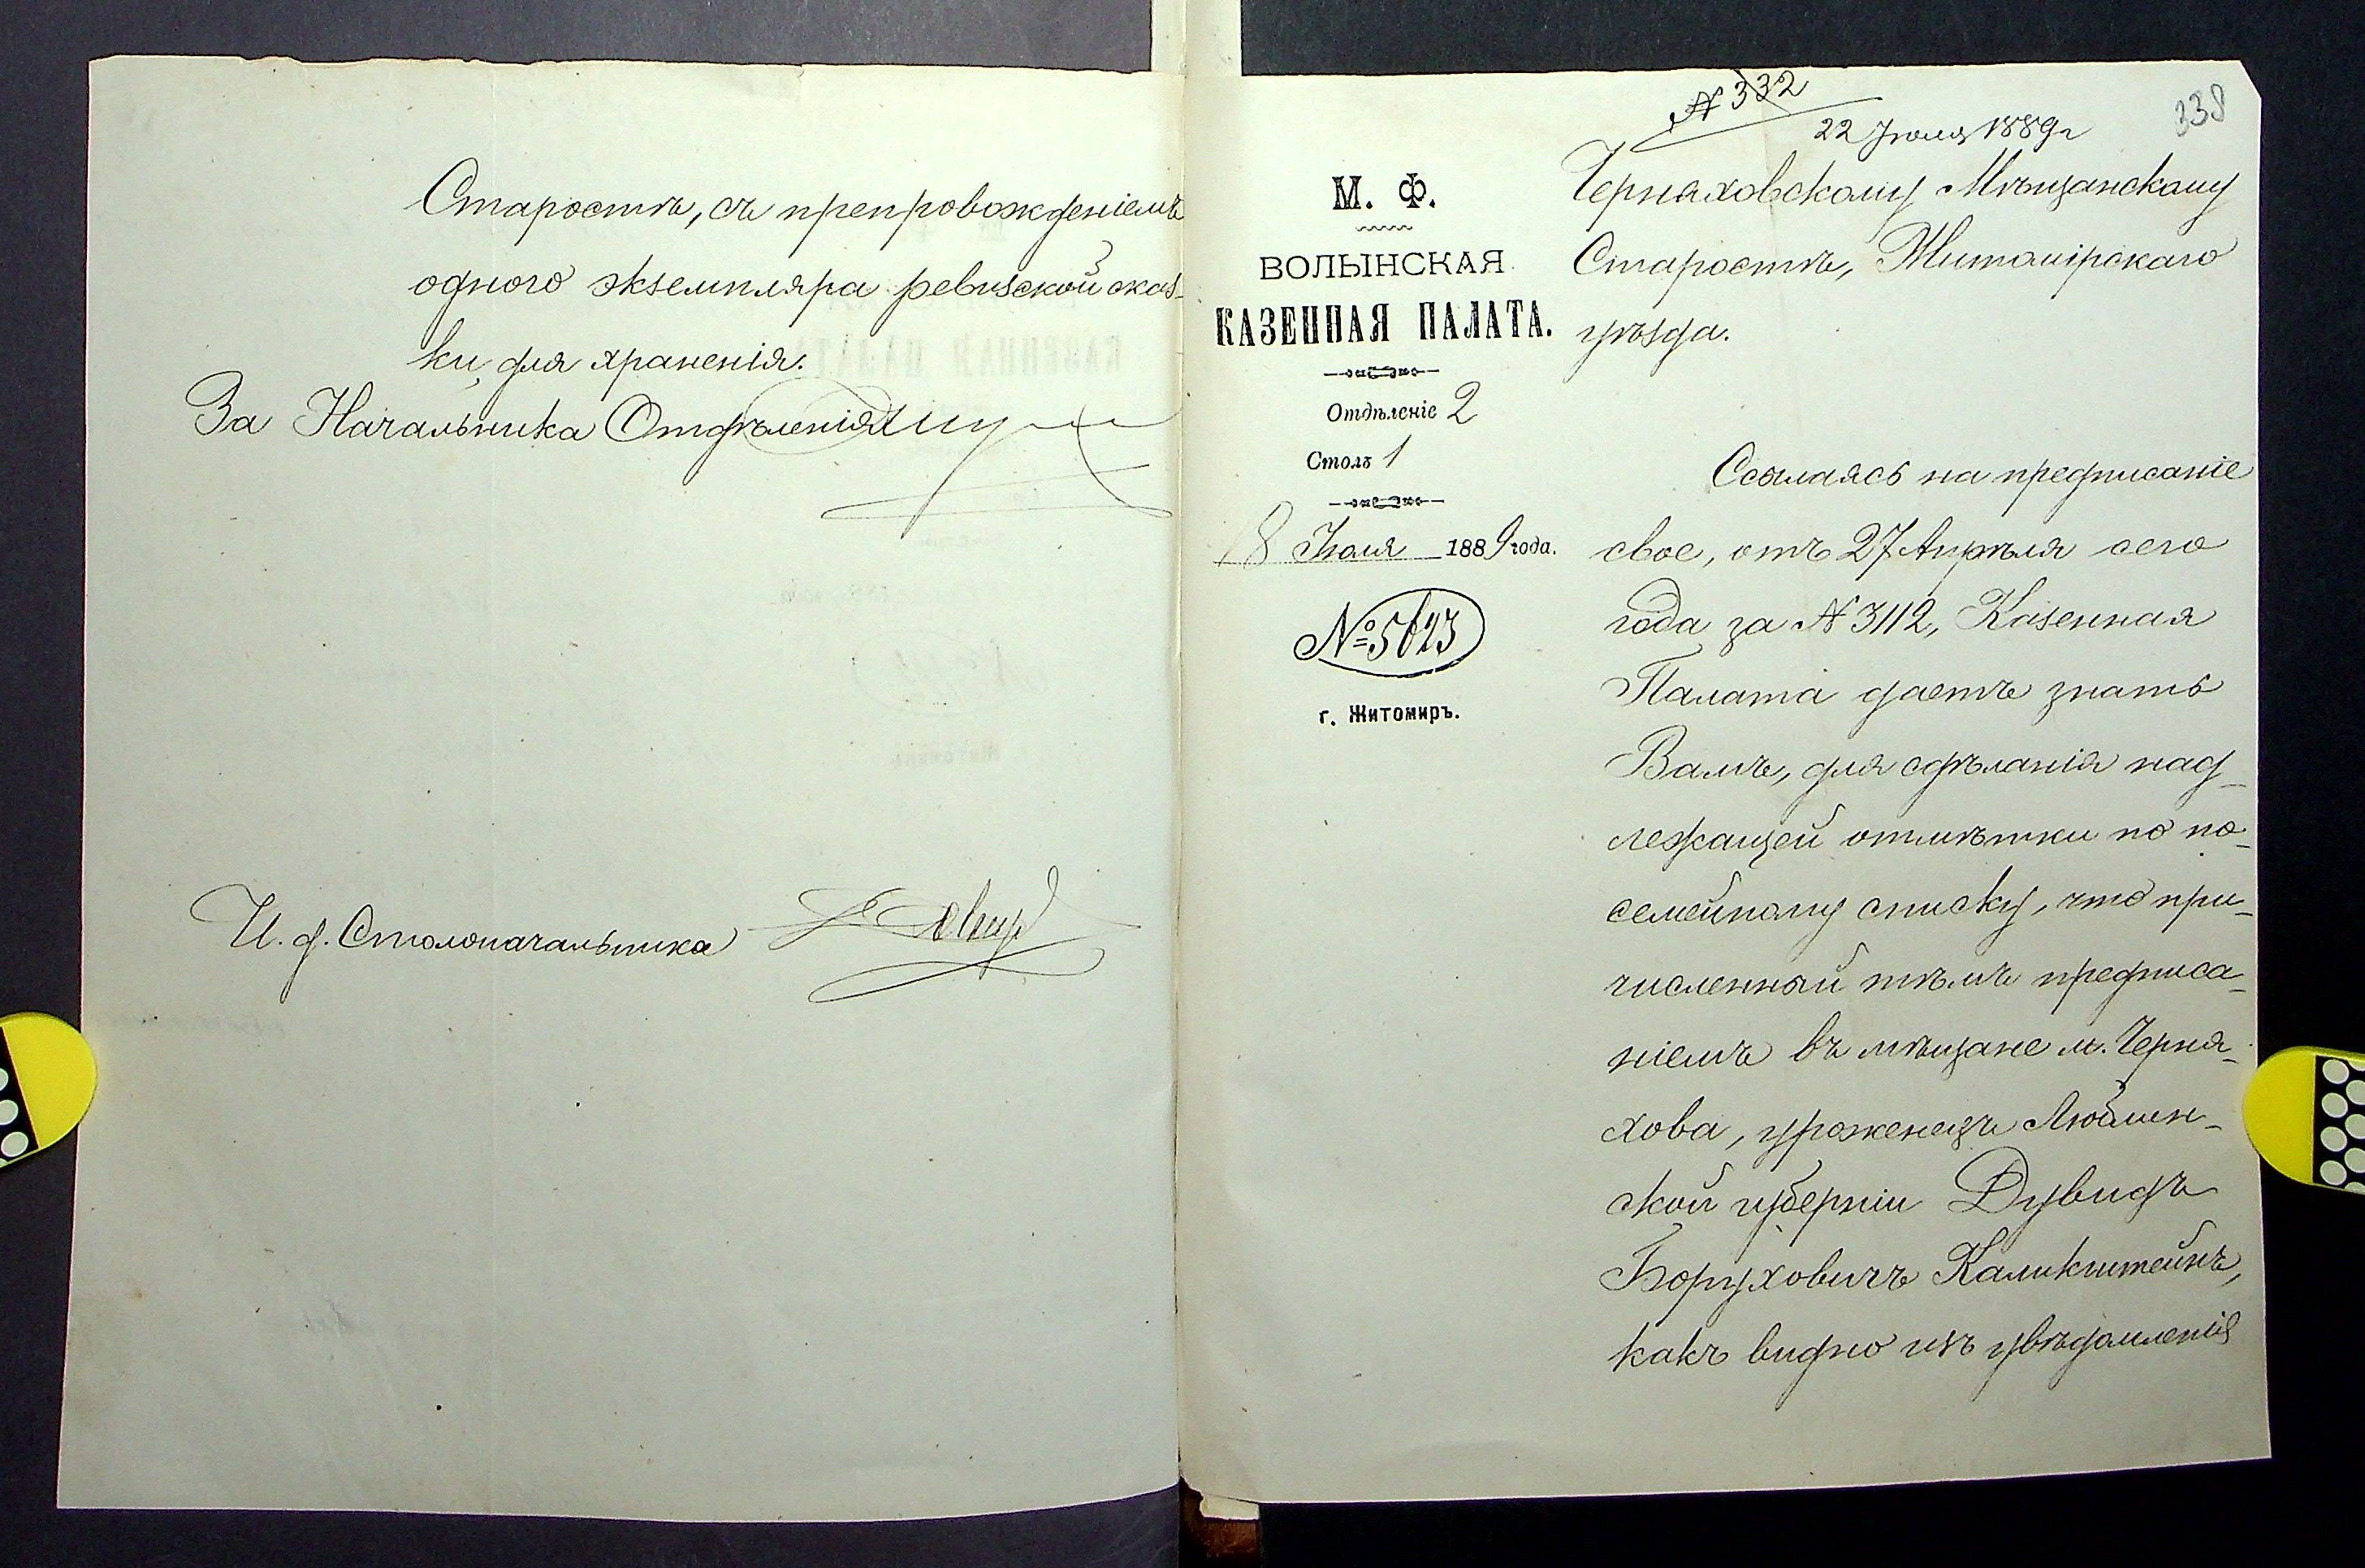 Старостѣ, съ препровожденіемъ
одного экземпляра ревизской сказ-
ки, для храненія.
За Начальника Отдѣленія
И. д. Столоначальника
№ 332
22 Іюля 1889 г
338
М. Ф.
ВОЛЫНСКАЯ
КАЗЕННАЯ ПАЛАТА.
Отдѣленіе 2
Столъ 1
18 Іюля 1889 года.
№ 5623
г. Житомиръ.
Черняховскому Мѣщанскому
Старостѣ, Житомірскаго
уѣзда.
Ссылаясь на предписаніе
свое, отъ 27 Апрѣля сего
года за № 3112, Казенная
Палата даетъ знать
Вамъ, для сдѣланія над-
лежащей отмѣтки по по-
семейному списку, что при-
численный тѣмъ предписа-
ніемъ въ мѣщане м. Черня-
хова, уроженецъ Люблин-
ской губерніи Дувидъ
Боруховичъ Каликштейнъ,
какъ видно изъ увѣдомленія